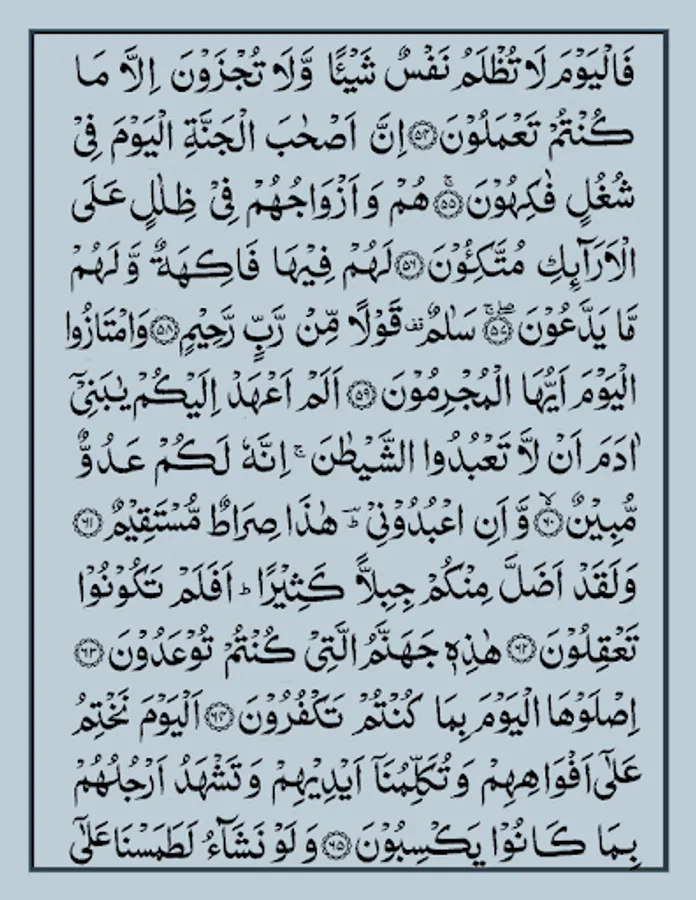 فَالْيَوْمَ لَا تُظْلَمُ نَفْسٌ شَيْئًا وَّلَا تُجْزَوْنَ اِلَّا مَا
كُنْتُمْ تَعْمَلُوْنَ ﴿۵۴﴾ اِنَّ اَصْحٰبَ الْجَنَّةِ الْيَوْمَ فِيْ
شُغُلٍ فٰكِهُوْنَ ﴿۵۵﴾ۚ هُمْ وَاَزْوَاجُهُمْ فِيْ ظِلٰلٍ عَلَى
الْاَرَآئِكِ مُتَّكِـُٔوْنَ ﴿۵۶﴾ لَهُمْ فِيْهَا فَاكِهَةٌ وَّلَهُمْ
مَّا يَدَّعُوْنَ ﴿۵۷﴾ سَلٰمٌ قف قَوْلًا مِّنْ رَّبٍّ رَّحِيْمٍ ﴿۵۸﴾ وَامْتَازُوا
الْيَوْمَ اَيُّهَا الْمُجْرِمُوْنَ ﴿۵۹﴾ اَلَمْ اَعْهَدْ اِلَيْكُمْ يٰبَنِيْٓ
اٰدَمَ اَنْ لَّا تَعْبُدُوا الشَّيْطٰنَ ۚ اِنَّهٗ لَكُمْ عَدُوٌّ
مُّبِيْنٌ ﴿۶۰﴾ۙ وَّاَنِ اعْبُدُوْنِيْ ؕ هٰذَا صِرَاطٌ مُّسْتَقِيْمٌ ﴿۶۱﴾
وَلَقَدْ اَضَلَّ مِنْكُمْ جِبِلًّا كَثِيْرًا ؕ اَفَلَمْ تَكُوْنُوْا
تَعْقِلُوْنَ ﴿۶۲﴾ هٰذِهٖ جَهَنَّمُ الَّتِيْ كُنْتُمْ تُوْعَدُوْنَ ﴿۶۳﴾
اِصْلَوْهَا الْيَوْمَ بِمَا كُنْتُمْ تَكْفُرُوْنَ ﴿۶۴﴾ اَلْيَوْمَ نَخْتِمُ
عَلٰٓى اَفْوَاهِهِمْ وَتُكَلِّمُنَآ اَيْدِيْهِمْ وَتَشْهَدُ اَرْجُلُهُمْ
بِمَا كَانُوْا يَكْسِبُوْنَ ﴿۶۵﴾ وَلَوْ نَشَآءُ لَطَمَسْنَا عَلٰٓى